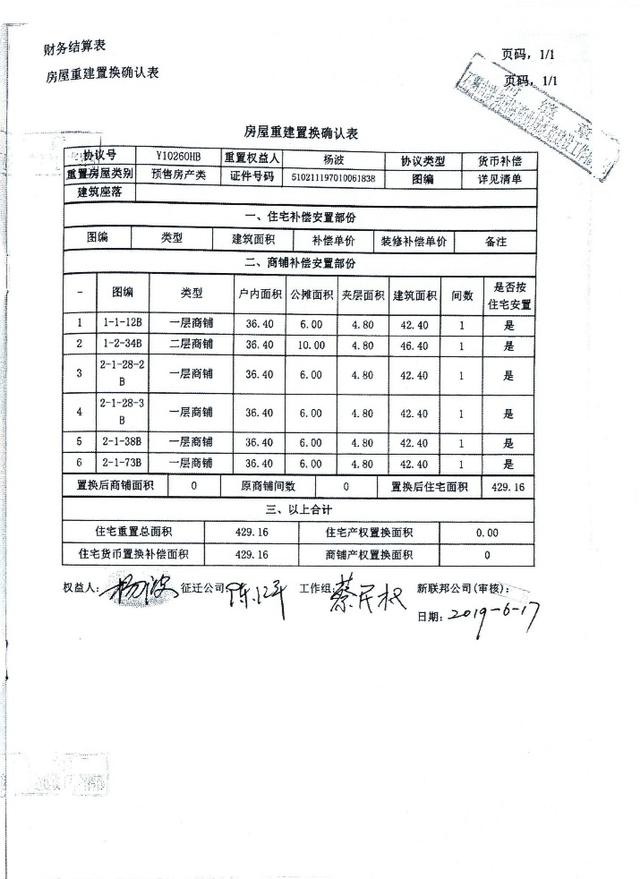 财务结算表
页码，1/1
房屋重建置换确认表
页码，1/1
房屋重建置换确认表
协议号 Y10260HB 重置权益人 杨波 协议类型 货币补偿
重置房屋类别 预售房产类 证件号码 510211197010061838 图编 详见清单
建筑座落
一、住宅补偿安置部份
图编 类型 建筑面积 补偿单价 装修补偿单价 备注
二、商铺补偿安置部份
- 图编 类型 户内面积 公摊面积 夹层面积 建筑面积 间数 是否按住宅安置
1 1-1-12B 一层商铺 36.40 6.00 4.80 42.40 1 是
2 1-2-34B 二层商铺 36.40 10.00 4.80 46.40 1 是
3 2-1-28-2B 一层商铺 36.40 6.00 4.80 42.40 1 是
4 2-1-28-3B 一层商铺 36.40 6.00 4.80 42.40 1 是
5 2-1-38B 一层商铺 36.40 6.00 4.80 42.40 1 是
6 2-1-73B 一层商铺 36.40 6.00 4.80 42.40 1 是
置换后商铺面积 0 原商铺间数 0 置换后住宅面积 429.16
三、以上合计
住宅重置总面积 429.16 住宅产权置换面积 0.00
住宅货币置换补偿面积 429.16 商铺产权置换面积 0
权益人： 杨波 征迁公司 工作组： 蔡民权 新联邦公司(审核)：
日期： 2019-6-17